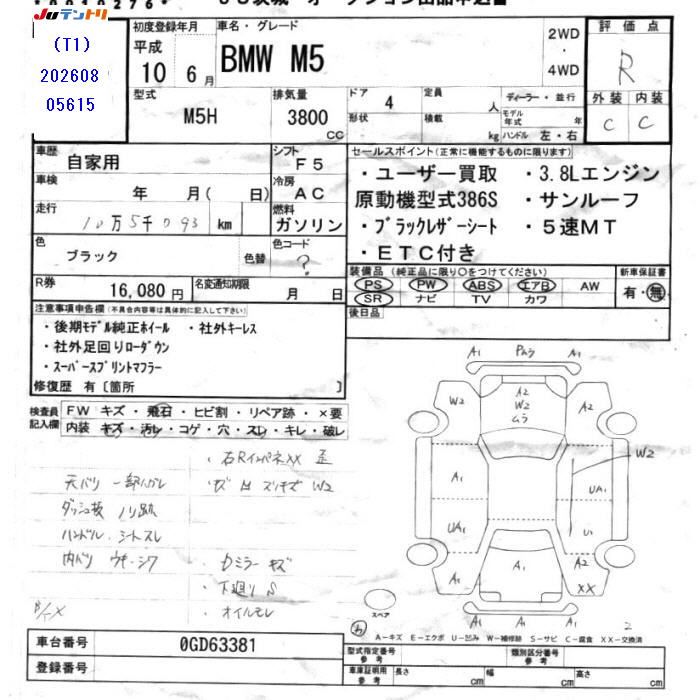 JUテントリ
(T1)
202608
05615
初度登録年月
平成
10 6月
車名・グレード
BMW M5
2WD
・
4WD
評価点
R
外装 内装
C C
型式
M5H
排気量
3800
CC
ドア 4
形状
定員 人
積載 kg
ディーラー・並行
モデル年式 年
ハンドル 左・右
車歴
自家用
シフト
F5
車検
年 月( 日)
冷房
AC
走行
10万5千093 km
燃料
ガソリン
色
ブラック
色替
色コード
?
R券
16,080円
名変通知期限
月 日
セールスポイント(正常に機能するものに限ります)
・ユーザー買取 ・3.8Lエンジン
原動機型式386S ・サンルーフ
・ブラックレザーシート ・5速MT
・ETC付き
装備品(純正品に限り○をつけてください)
PS PW ABS エアB AW
SR ナビ TV カワ
新車保証書
有・無
後日品
注意事項申告欄(不具合内容等は具体的に記入して下さい)
・後期モデル純正ホイール ・社外キーレス
・社外足回りローダウン
・スーパースプリントマフラー
修復歴 有〔箇所 〕
検査員
記入欄
FW キズ・飛石・ヒビ割・リペア跡・×要
内装 キズ・汚レ・コゲ・穴・スレ・キレ・破レ
・右RインパネXX 歪
天バリ 一部ハガレ
ダッシュ板 ノリ跡
ハンドル・シートスレ
内バリ ウキ・シワ
・Dミラー キズ
・下廻りS
・オイルモレ
A1 A1
W2 A2 W2 ムラ A2
A1 W2
UA1
UA1 U1
A1 A1 A2
XX
A1 A1 A1
スペア
A-キズ E-エクボ U-凹み W-補修跡 S-サビ C-腐食 XX-交換済
車台番号 0GD63381
登録番号
型式指定番号
参考
類別区分番号
参考
車庫証明用
参考
長さ 幅 高さ